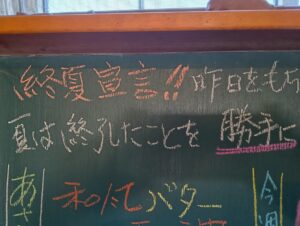 終夏宣言!! 昨日をもち
夏は終了したことを 勝手に
あさ
和だしバター
今週